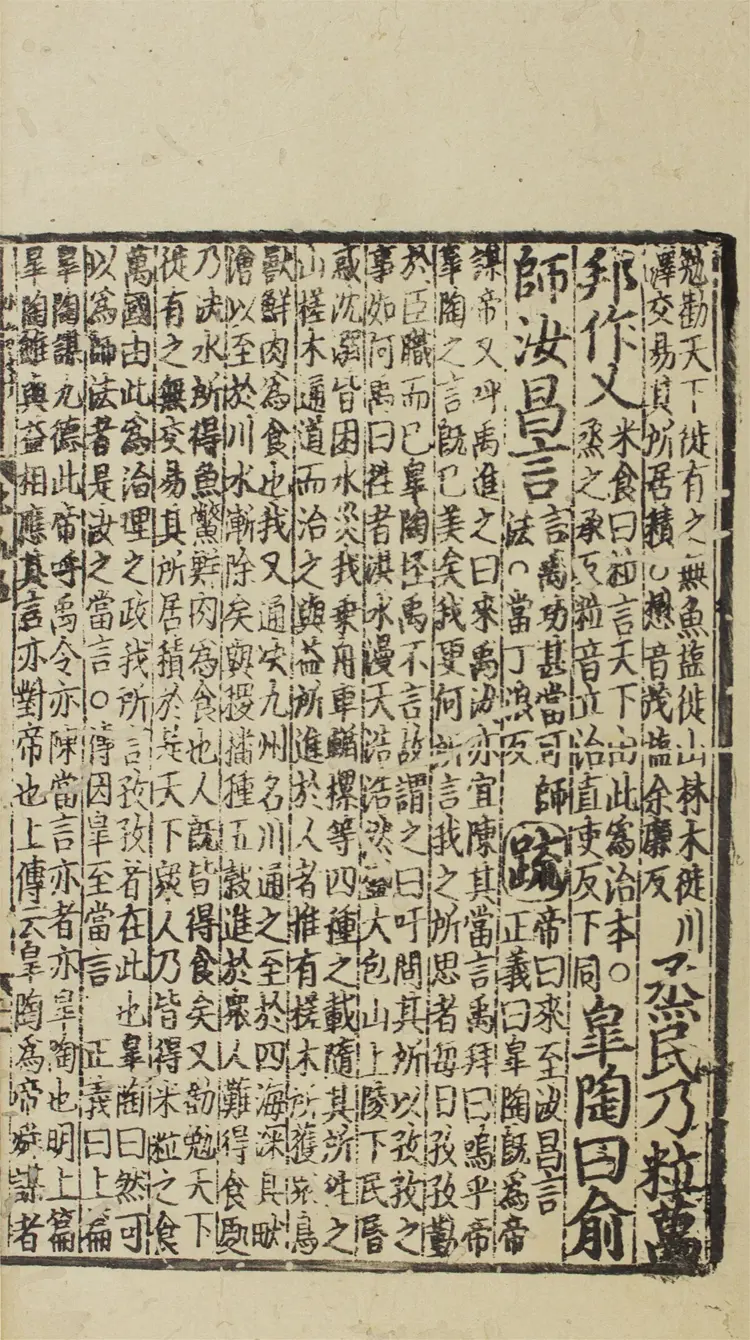 勉勸天下徙有之無魚塩徙山林木徙川
澤交易其所居積○懋音茂塩余廉反
烝民乃粒萬
邦作乂
米食曰粒言天下由此為治本○
烝之承反粒音立治直吏反下同
皐陶曰俞
師汝昌言
言禹功甚當可師
法○當丁浪反
疏
帝曰來至汝昌言
正義曰皐陶既為帝
謀帝又呼禹進之曰來禹汝亦宜陳其當言禹拜曰嗚乎帝
皐陶之言既已美矣我更何所言我之所思者每日孜孜勤
於臣職而已皐陶怪禹不言故謂之曰吁問其所以孜孜之
事如何禹曰往者洪水漫天浩浩然盛大包山上陵下民昏
惑沈溺皆困水災我乘舟車輴樏等四種之載隨其所往之
山槎木通道而治之與益所進於人者惟有槎木所獲衆鳥
獸鮮肉為食也我又通决九州名川通之至於四海深其畎
澮以至於川水漸除矣與稷播種五穀進於衆人難得食處
乃决水所得魚鱉鮮肉為食也人既皆得食矣又勸勉天下
徙有之無交易其所居積於是天下衆人乃皆得米粒之食
萬國由此為治理之政我所言孜孜者在此也皐陶曰然可
以為師法者是汝之當言○傳因皐至當言 正義曰上篇
皐陶謀九德此帝呼禹令亦陳當言亦者亦皐陶也明上篇
皐陶雖與益相應其言亦對帝也上傳云皐陶為帝舜謀者